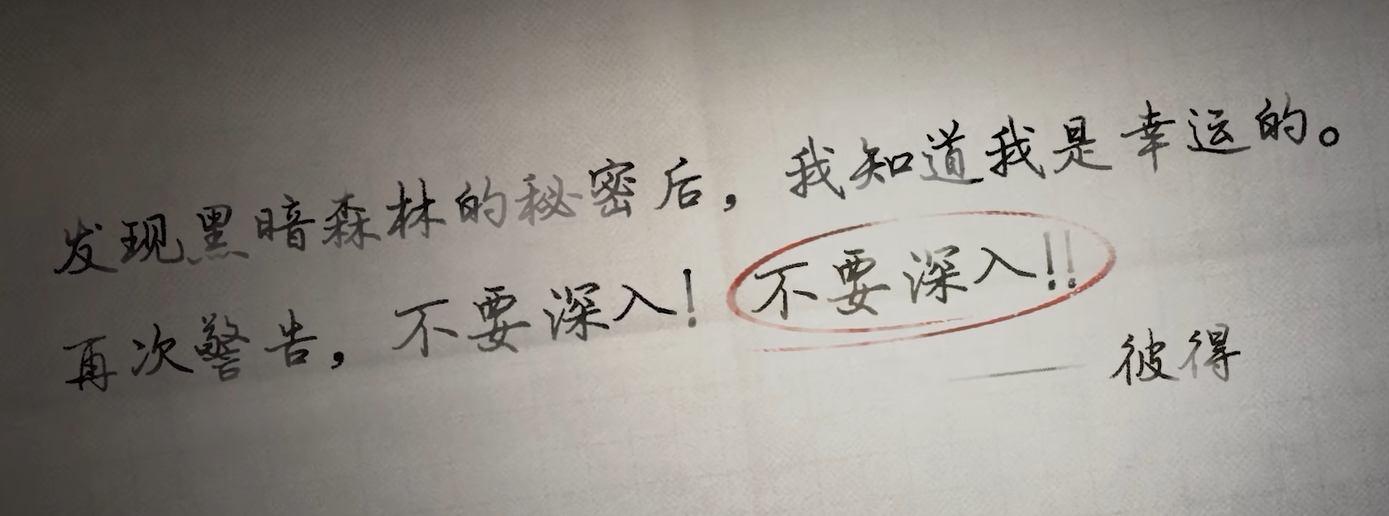 发现黑暗森林的秘密后，我知道我是幸运的。
再次警告，不要深入！不要深入!!
——彼得